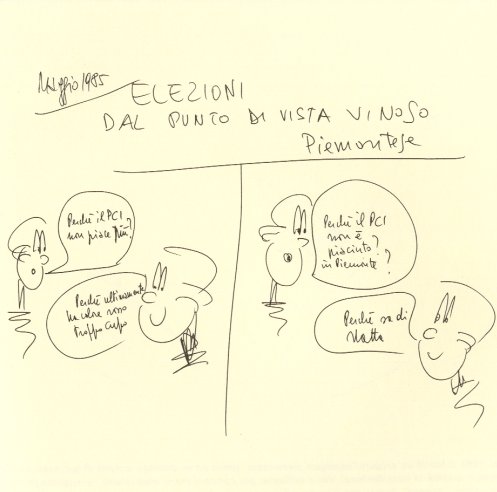 Maggio 1985
ELEZIONI
DAL PUNTO DI VISTA VINOSO
Piemontese
Perché il PCI
non piace più?
Perché ultimamente
ha colore rosso
troppo cupo
Perché il PCI
non è
piaciuto?
in Piemonte?
Perché sa di